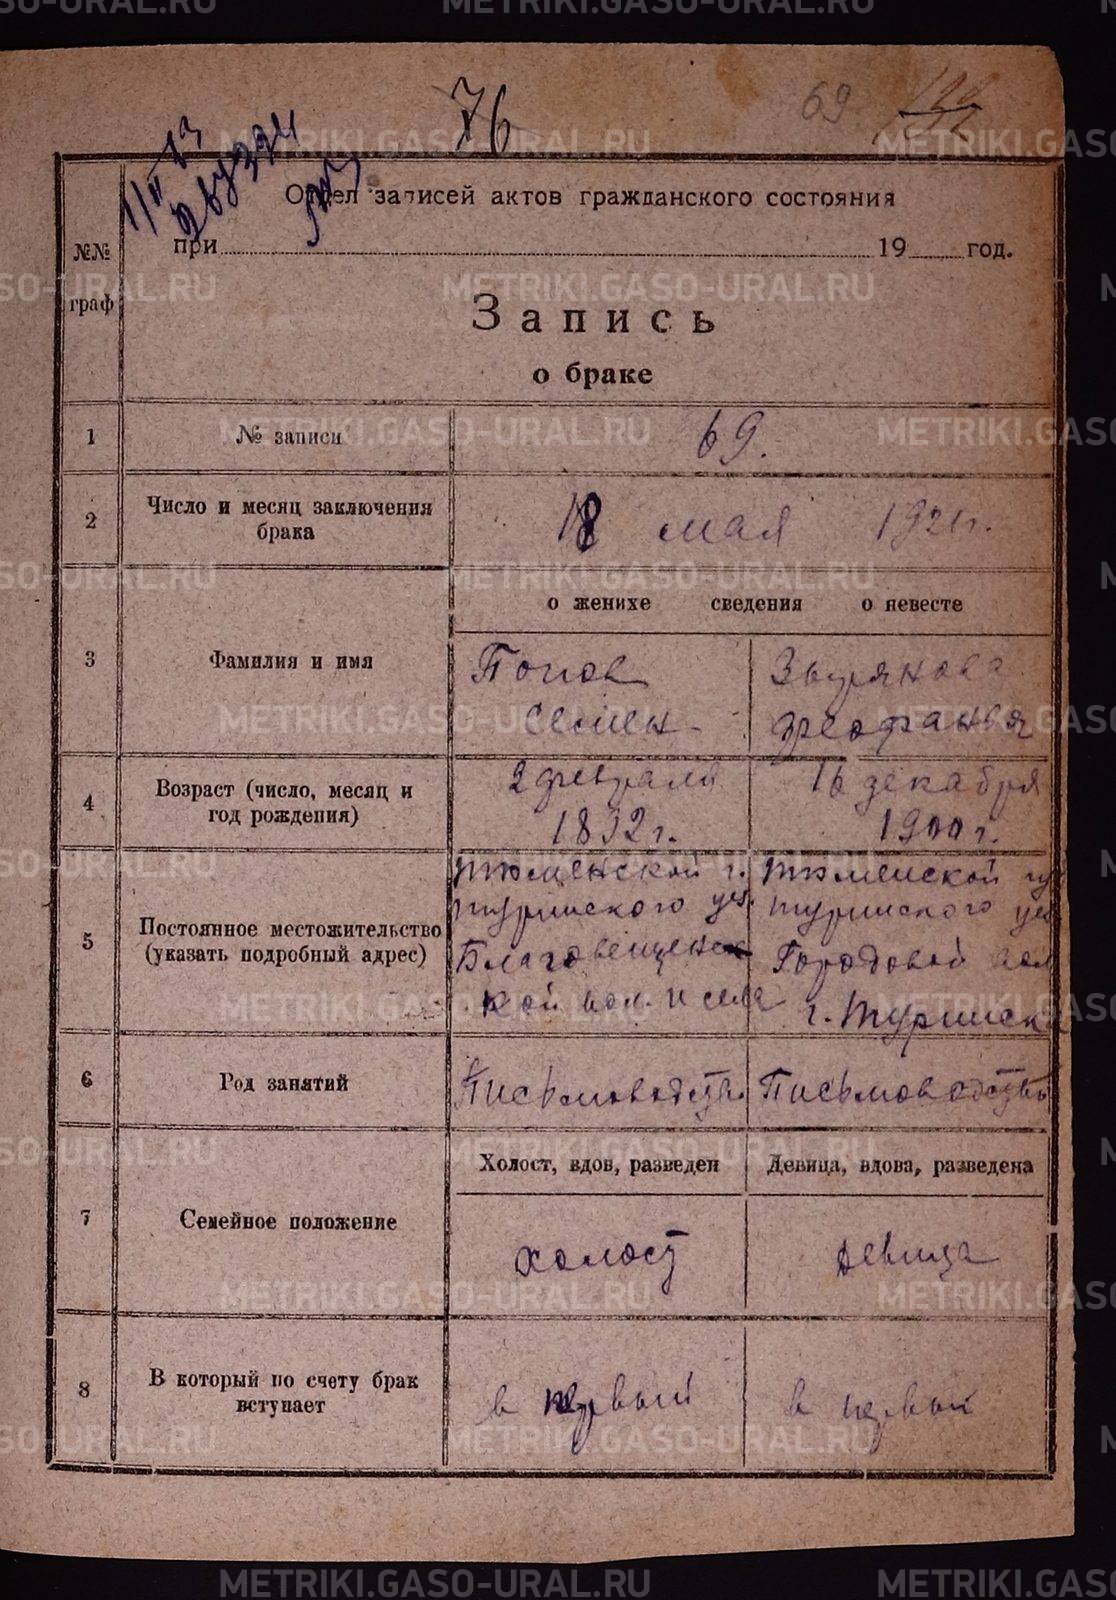 76
69
Отдел записей актов гражданского состояния
№№ граф
при 19 год.
Запись
о браке
1 № записи 69.
2 Число и месяц заключения брака 18 мая 1921 г.
о женихе сведения о невесте
3 Фамилия и имя
Попов Зырянова
Семен
4 Возраст (число, месяц и год рождения)
2 февраля 16 декабря
1892 г. 1900 г.
5 Постоянное местожительство (указать подробный адрес)
Тюменской г. Тюменской гу
Туринского уез. Туринского уез
Благовещенс Городовой вол
кой вол. и села г. Туринск
6 Род занятий
Письмоводств. Письмоводство
Холост, вдов, разведен Девица, вдова, разведена
7 Семейное положение
холост девица
8 В который по счету брак вступает
в первый в первый
METRIKI.GASO-URAL.RU